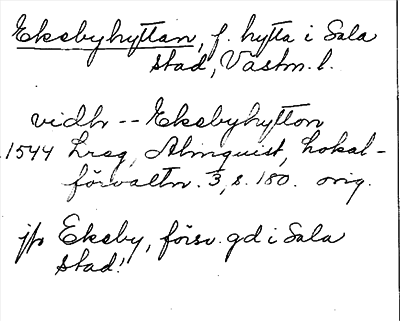 Eksbyhyttan, f. hytta i Sala
stad, Västm. l.
vidh -- Eksbyhytton
1544 Lreg, Almquist, Lokal-
förvaltn. 3, s. 180. orig.
jfr Eksby, försv. gd i Sala
stad!